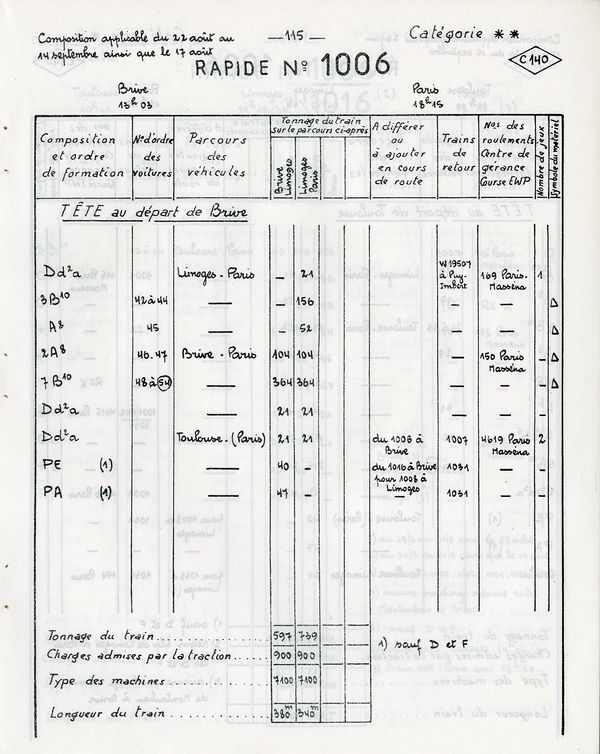 Composition applicable du 22 août au
14 septembre ainsi que le 17 août
—115—
Catégorie **
RAPIDE Nº 1006
C140
Brive
13h03
Paris
18h15
Composition et ordre de formation
Nºd'ordre des voitures
Parcours des véhicules
Tonnage du train sur le parcours ci-après
Brive Limoges
Limoges Paris
A différer ou à ajouter en cours de route
Trains de retour
Nos des roulements Centre de gérance Course EWP
Nombre de jeux
Symbole du matériel
TÊTE au départ de Brive
Dd²a Limoges-Paris — 21 W19507 à Puy-Imbert 169 Paris-Masséna 1
3B¹⁰ 42à44 — — 156 — — — Δ
A⁸ 45 — — 52 — — — Δ
2A⁸ 46.47 Brive-Paris 104 104 — 150 Paris Masséna — Δ
7B¹⁰ 48à54 — 364 364 — — — Δ
Dd²a — 21 21 — — —
Dd²a Toulouse-(Paris) 21 21 du 1006 à Brive 1007 4619 Paris Masséna 2
PE (1) — 40 — du 1016 à Brive pour 1008 à Limoges 1031 — —
PA (1) — 47 — — 1031 — —
Tonnage du train 597 739
Charges admises par la traction 900 900
Type des machines 7100 7100
Longueur du train 380m 340m
1) sauf D et F